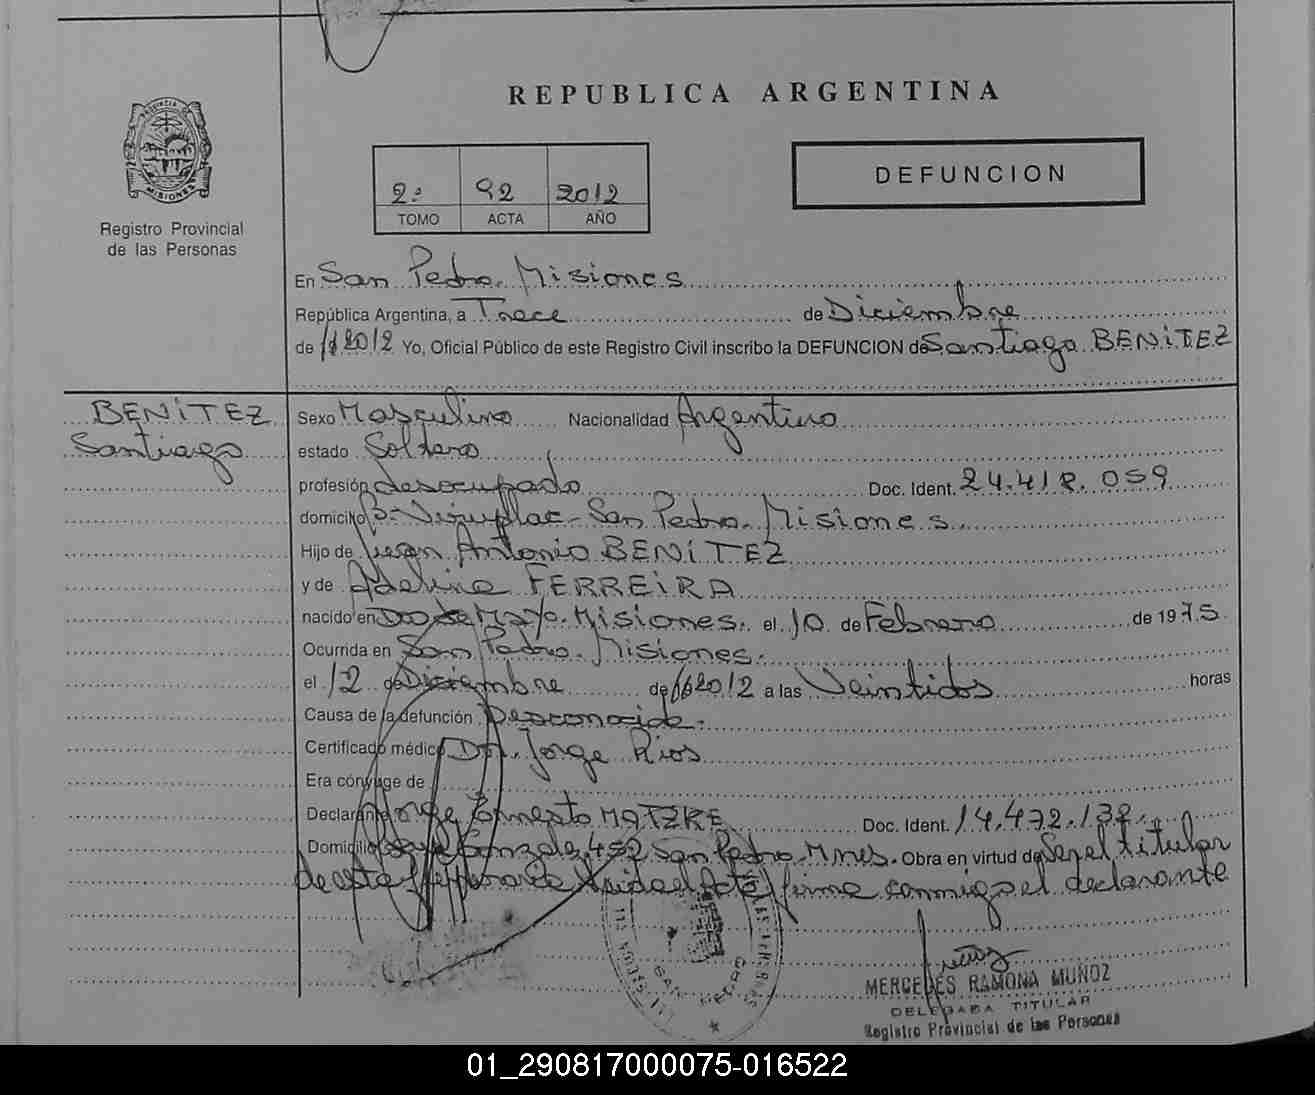 REPUBLICA ARGENTINA
PROVINCIA DE
MISIONES
Registro Provincial
de las Personas
2º 92 2012
TOMO ACTA AÑO
DEFUNCION
En San Pedro. Misiones
República Argentina, a Trece de Diciembre
de 2012 Yo, Oficial Público de este Registro Civil inscribo la DEFUNCION de Santiago BENITEZ
BENITEZ
Santiago
Sexo Masculino Nacionalidad Argentino
estado Soltero
profesión desocupado Doc. Ident. 24.412.059
domicilio San Pedro. Misiones.
Hijo de Juan Antonio BENITEZ
y de Adelina FERREIRA
nacido en Dos de Mayo. Misiones. el 10 de Febrero de 1975
Ocurrida en San Pedro. Misiones.
el 12 de Diciembre de 2012 a las Veintidos horas
Causa de la defunción Desconocida.
Certificado médico Dr. Jorge Rios
Era cónyuge de
Declarante Jorge Ernesto MATZKE Doc. Ident. 14.472.132.
Domicilio 452 San Pedro. Mnes. Obra en virtud de Ser el titular
de esta firma conmigo el declarante
SAN PEDRO
MERCEDES RAMONA MUÑOZ
DELEGADA TITULAR
Registro Provincial de las Personas
01_290817000075-016522